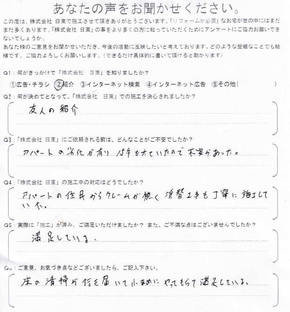 あなたの声をお聞かせください。
この度は、株式会社 日東で施工させて頂きありがとうございます。「リフォームが必要」なお宅が世の中にはまだ
まだ多くあります。「株式会社 日東」の事をより多くの方に知っていただくためにアンケートにご協力お願いでき
ないでしょうか。
あなた様のご意見をお聞かせいただき、今後の活動に反映したいと考えております。どのような些細なことでも結
構です。ご協力よろしくお願いします。(できるだけ具体的に書いて頂けると助かります)
Q1 何がきっかけで「株式会社 日東」を知りましたか?
①広告・チラシ ②紹介 ③インターネット検索 ④インターネット広告 ⑤その他( )
Q2 何が決めてとなって、「株式会社 日東」での施工を決心されましたか?
友人の紹介
Q3 「株式会社 日東」にご依頼される前は、どんなことがご不安でしたか?
アパートの劣化が有り
不安があった。
Q4 「株式会社 日東」の施工中の対応はどうでしたか?
アパートの住民からクレームが無く 塗替工事も丁寧に施工して
いた。
Q5 実際に「施工」が済み、ご満足いただけましたか? また、ご不満な点はございませんでしたか?
満足している。
Q6 ご意見、お気づき点などございましたら、ご記入下さい。
床の清掃が行き届いて小まめにやってもらって満足している。